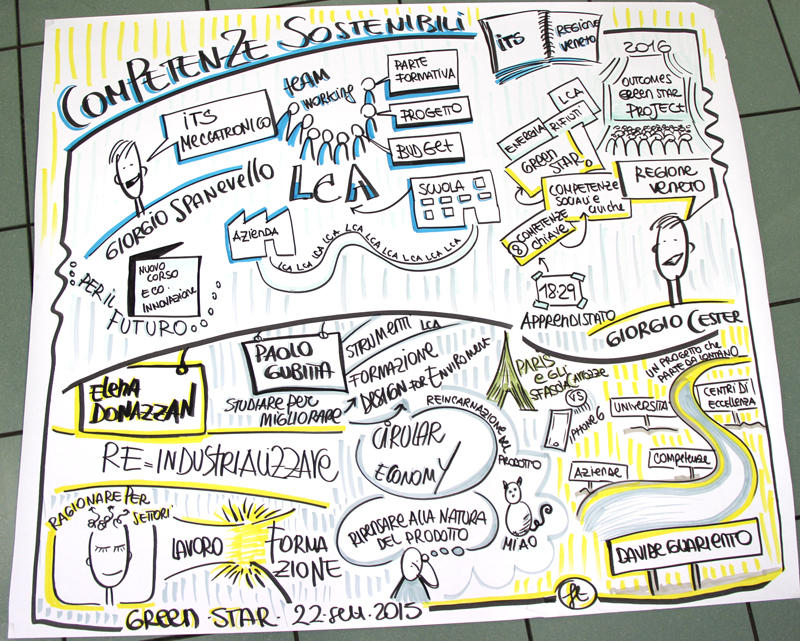 COMPETENZE SOSTENIBILI
iTS
MECCATRONICO
GIORGIO SPANEVELLO
tEAM
WORKING
PARTE
FORMATIVA
PROGETTO
BUDGET
LCA
AZIENDA
SCUOLA
LCA LCA LCA LCA LCA LCA LCA LCA LCA LCA
NUOVO
CORSO
ECO-
INNOVAZIONE
PER IL
FUTURO
iTS
REGIONE
VENETO
2016
OUTCOMES
GREEN STAR
PROJECT
LCA
RIFIUTI
ENERGIA
GREEN
STAR
COMPETENZE
SOCIALI E
CIVICHE
8 COMPETENZE
CHIAVE
REGIONE
VENETO
18-29
APPRENDISTATO
GIORGIO CESTER
ELENA
DONAZZAN
PAOLO
GUBITTA
STUDIARE PER
MIGLIORARE
STRUMENTI LCA
FORMAZIONE
DESIGN FOR ENVIROMENT
RE=INDUSTRIALIZZARE
RAGIONARE PER
SETTORI
LAVORO
FORMA
ZIONE
CIRULAR
ECONOMY
REINCARNAZIONE DEL
PRODOTTO
RIPENSARE ALLA NATURA
DEL PRODOTTO
MIAO
PARIS
E GLI
SFASCIACARROZZE
VS
IPHONE 6
UN PROGETTO CHE
PARTE DA LONTANO
UNIVERSITÀ
CENTRI DI
ECCELLENZA
AZIENDE
COMPETENZE
DAVIDE GUARIENTO
GREEN STAR - 22 SETT. 2015